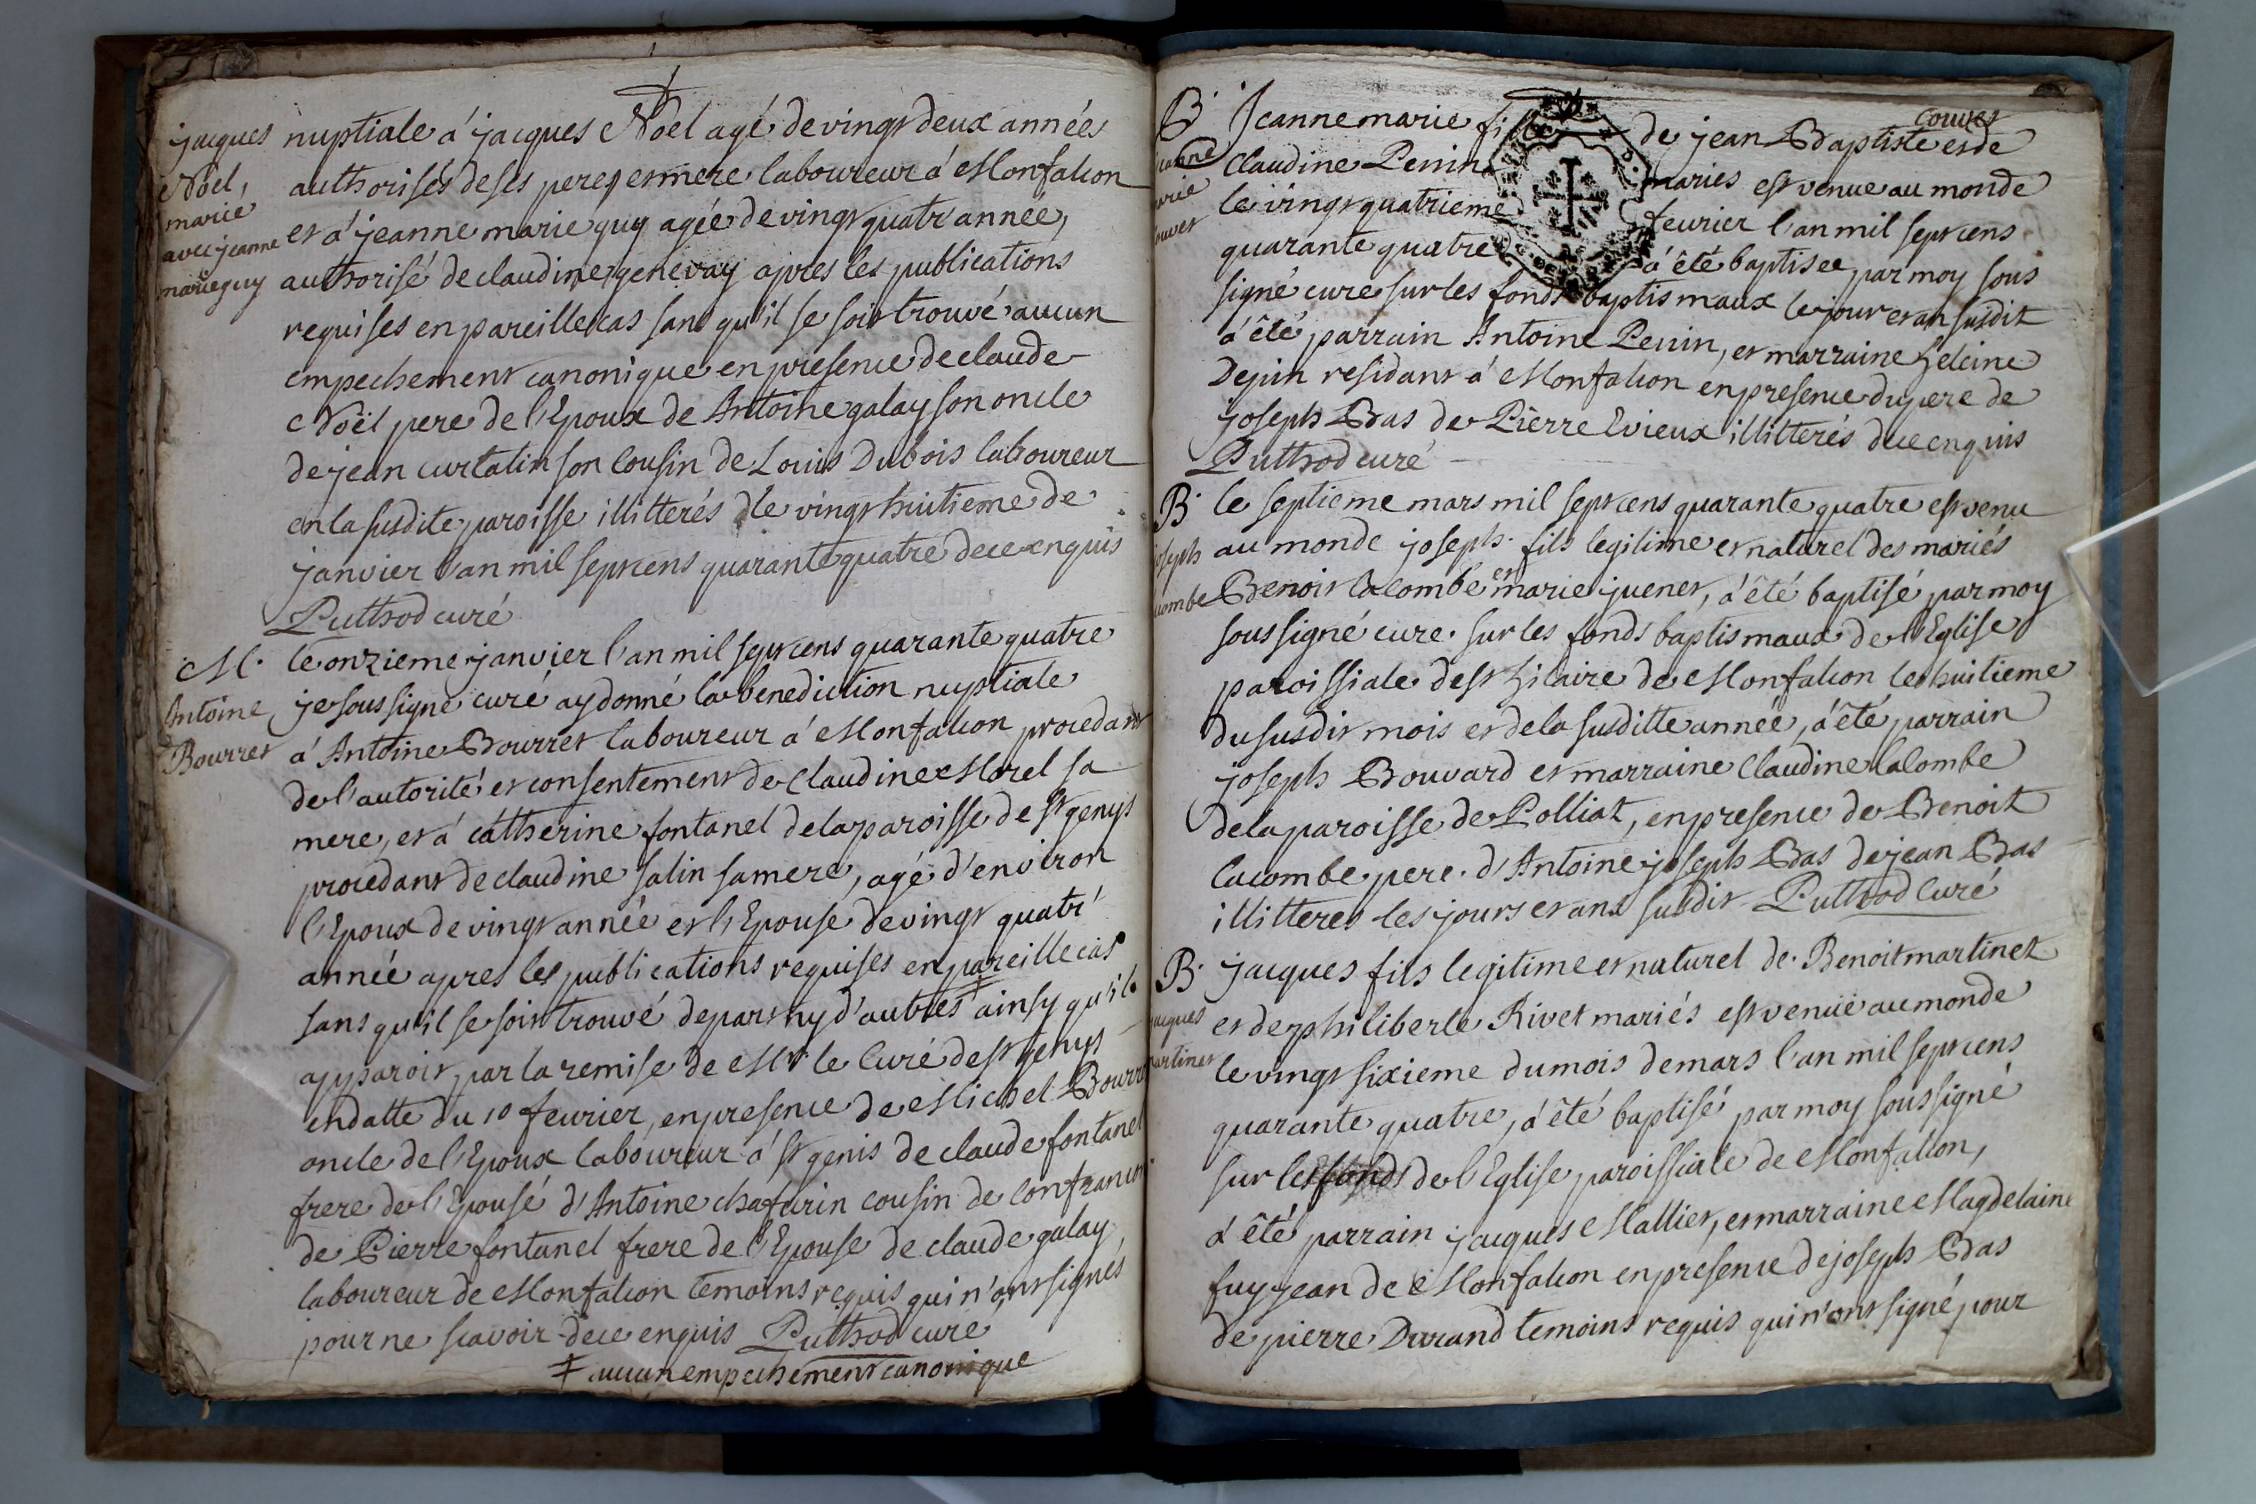 jacques
Noel,
marie
avec jeanne
marie guy
nuptiale á jacques Noel agé de vingt deux année
authorisés de ses pere et mere laboureur á Monfalcon
et á jeanne marie guy agée de vingt quatr'année,
authorisé de claudine genevay apres les publications
requises en pareille cas sans qu'il se soit trouvé aucun
empechement canonique en presence de claude
Noël pere de l'Epoux de Antoine galay son oncle
de jean curtalin son cousin de Louis Dubois laboureur
en la susdite paroisse illitterés le vingt huitieme de
janvier l'an mil sept cens quarante quatre de ce enquis
Puthod curé
M.
Antoine
Bourret
le onzieme janvier l'an mil sept cens quarante quatre
je soussigné curé ay donné la benediction nuptiale
á Antoine Bourret laboureur á Monfalcon procedant
de l'autorité et consentement de Claudine Morel sa
mere, et á catherine fontanel de la paroisse de st genys
procedant de claudine salin sa mere, agé d'environ
l'Epoux de vingt année et l'Epouse de vingt quatr'
année apres les publications requises en pareille cas
sans qu'il se soit trouvé ‡ de part ny d'autres ainsy qu'il
apparoit par la remise de Mr le Curé de st genys
en datte du 10 fevrier, en presence de Michel Bourret
oncle de l'Epoux laboureur á st genis de claude fontanel
frere de l'Epousé d'Antoine chafurin cousin de confrancon
de Pierre fontanel frere de l'Epouse de claude galay,
laboureur de Monfalcon temoins requis qui n'ont signés
pour ne scavoir de ce enquis Puthod curé
‡ aucun empechement canonique
B.
jeanne
marie
couvet
Jeanne marie fille de jean Baptiste couvet et de
Claudine Perrin mariés est venue au monde
le vingt quatrieme fevrier l'an mil sept cens
quarante quatre á été baptisee par moy sous
signé curé sur les fonds baptismaux le jour et an susdit
á été parrain Antoine Perrin, et marraine heleine
Depin residant á Monfalcon en presence du pere de
joseph Bas de Pierre Evieux illitterés de ce enquis
Puthod curé
B.
joseph
lacombe
le septieme mars mil sept cens quarante quatre est venu
au monde joseph fils legitime et naturel des mariés
Benoit lacombe et marie juenet, á été baptisé par moy
soussigné curé sur les fonds baptismaux de l'Eglise
paroissiale de st hilaire de Monfalcon le huitieme
du susdit mois et de la susditte année, á été parrain
joseph Bouvard et marraine Claudine lacombe
de la paroisse de Polliat, en presence de Benoit
lacombe pere d'Antoine joseph Bas de jean Bas
illitteres les jours et ans susdit Puthod Curé
B.
jacques
martinet
jacques fils legitime et naturel de Benoit martinet
et de philiberte Rivet mariés est venue au monde
le vingt sixieme du mois de mars l'an mil sept cens
quarante quatre, á été baptisé par moy soussigné
sur les fonds de l'Eglise paroissiale de Monfalcon,
á été parrain jacques Mallier, et marraine Magdelaine
fuy jean de Monfalcon en presence de joseph Bas
de pierre Durand temoins requis qui n'ont signé pour